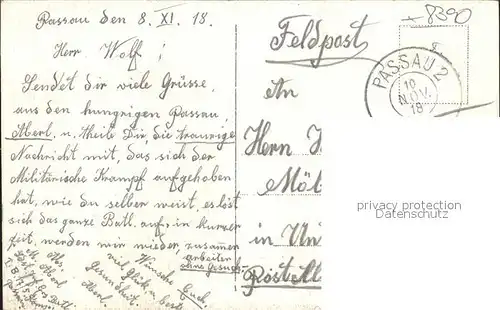 Passau den 8. XI. 18.
Herr Wolf!
Sendet dir viele Grüsse,
aus den hungrigen Passau,
Aberl, u. theile Dir, die traurige
Nachricht mit, das sich der
Militärische Krampf aufgehoben
hat, wie du selber weist, es löst
sich das ganze Batl. auf, in kurzer
zeit, werden wir wieder, zusamen
arbeiten
ohne Gesuch.
Wünsche Euch
viel Glück, u. beste
Gesundheit.
Aberl.
Aberl
Batl.
Feldpost
8300
PASSAU 2
10
NOV.
18
An
Herrn
Möl
in Un
Röstell
privacy protection
Datenschutz